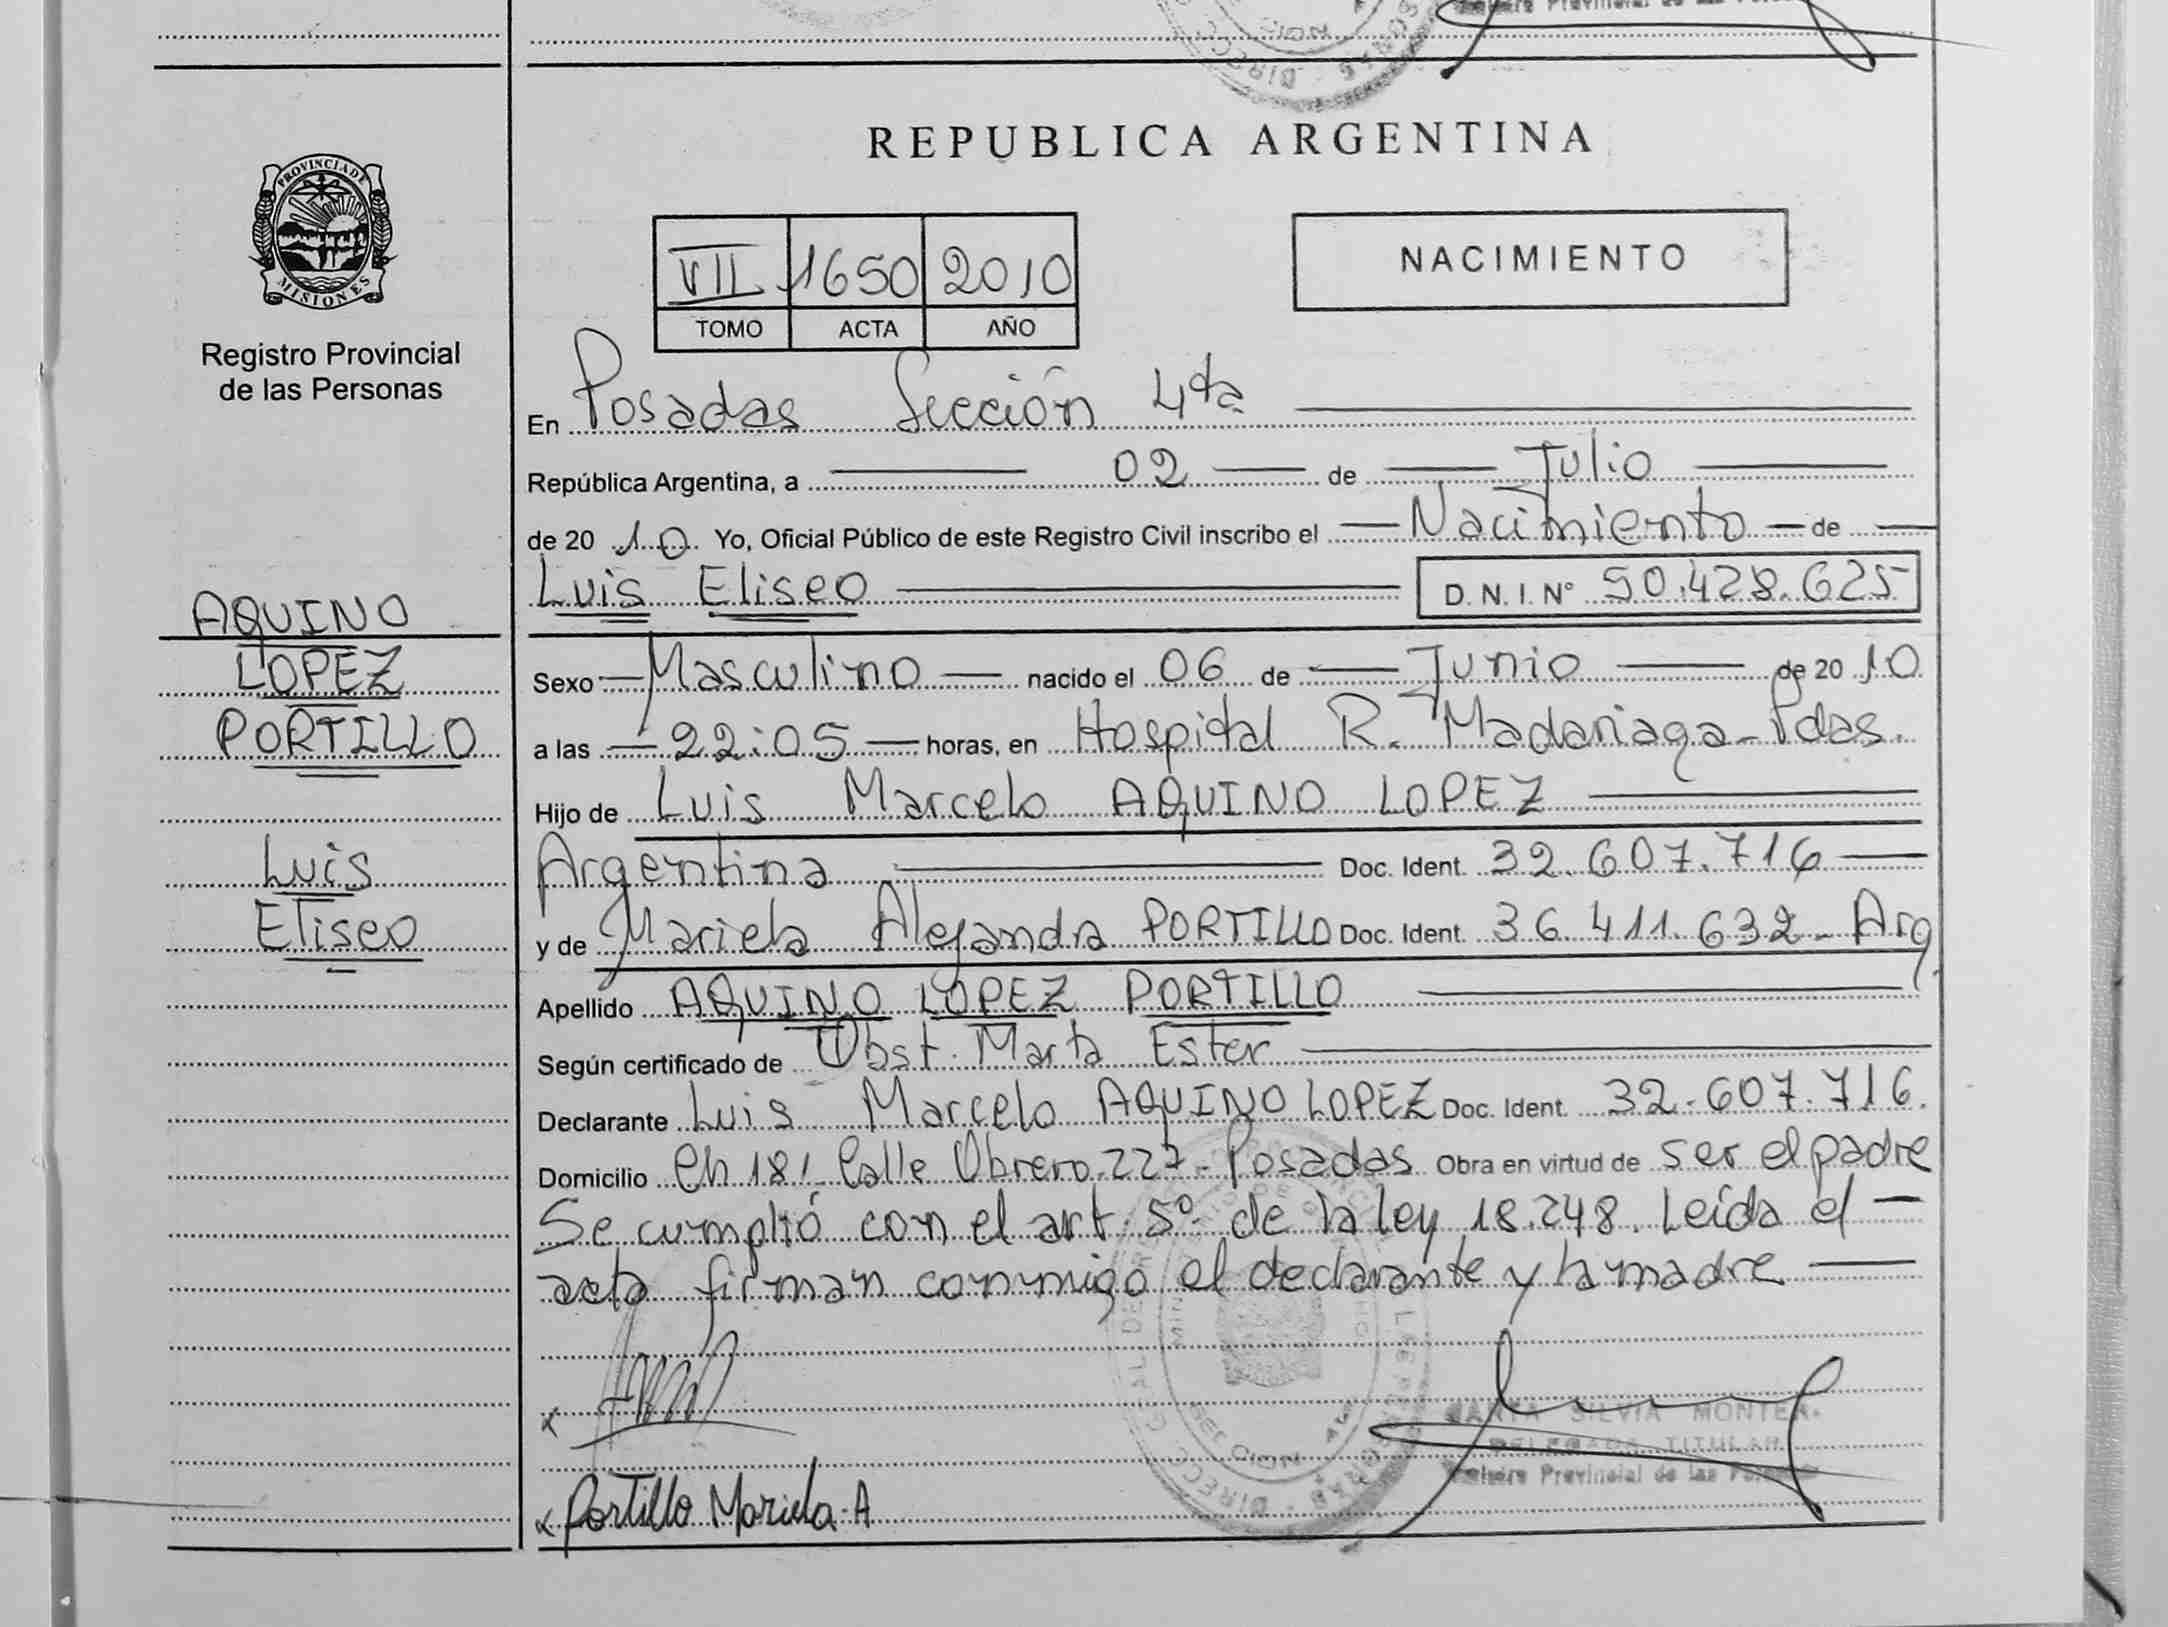 REPUBLICA ARGENTINA
PROVINCIA DE
MISIONES
Registro Provincial
de las Personas
VII 1650 2010
TOMO ACTA AÑO
NACIMIENTO
En Posadas Sección 4ta
República Argentina, a 02 de Julio
de 2010 Yo, Oficial Público de este Registro Civil inscribo el Nacimiento de
Luis Eliseo D.N.I. Nº 50.428.625
AQUINO
LOPEZ
PORTILLO
Luis
Eliseo
Sexo Masculino nacido el 06 de Junio de 2010
a las 22:05 horas, en Hospital R. Madariaga-Pdas.
Hijo de Luis Marcelo AQUINO LOPEZ
Argentina Doc. Ident. 32.607.716
y de Mariela Alejandra PORTILLO Doc. Ident. 36.411.632- Arg.
Apellido AQUINO LOPEZ PORTILLO
Según certificado de Obst. Marta Ester
Declarante Luis Marcelo AQUINO LOPEZ Doc. Ident. 32.607.716.
Domicilio Ch 181 Calle Obrero 227- Posadas Obra en virtud de ser el padre
Se cumplió con el art. 5º de la ley 18.248. Leída el
acta firman conmigo el declarante y la madre
SILVIA
DELEGADA TITULAR
Provincial de las
Portillo Mariela A